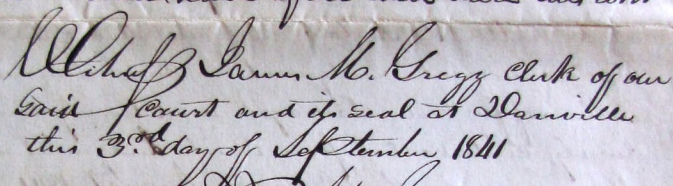 Witness James M. Gregg Clerk of our
said Court and its seal at Danville
this 3rd day of September 1841